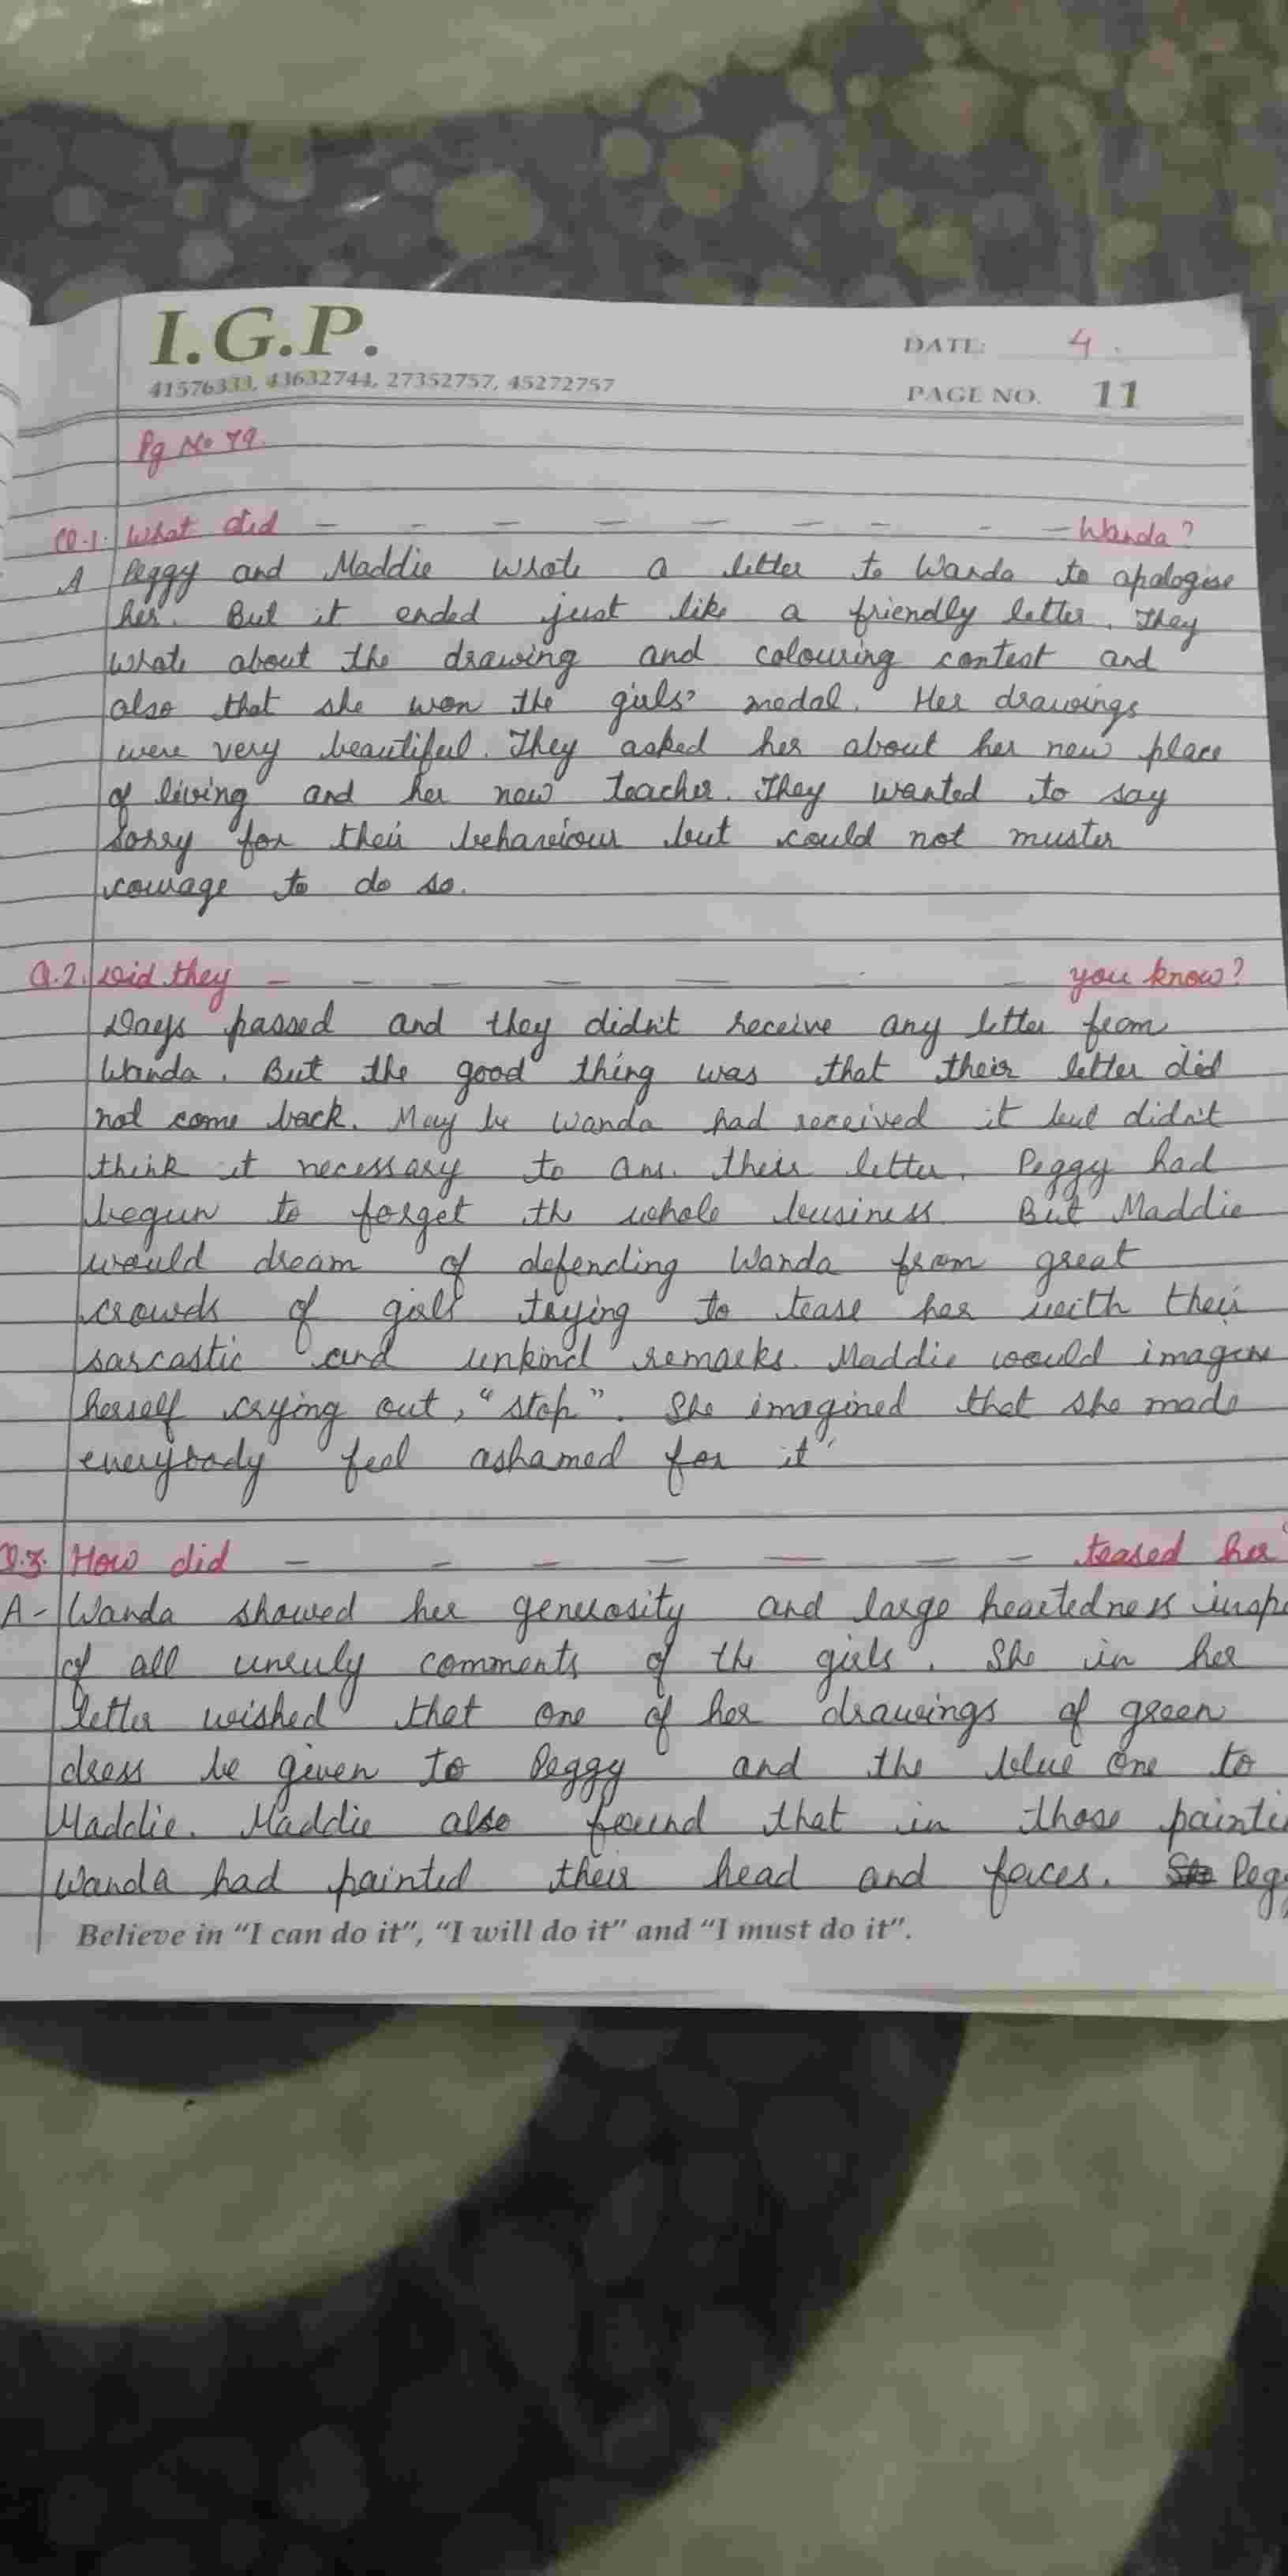 I.G.P.
41576333, 43632744, 27352757, 45272757
DATE: 4.
PAGE NO. 11
Pg No 79.
Q.1. What did - - - - - - - - - Wanda?
A Peggy and Maddie wrote a letter to Wanda to apologise
her. But it ended just like a friendly letter. They
wrote about the drawing and colouring contest and
also that she won the girls' medal. Her drawings
were very beautiful. They asked her about her new place
of living and her new teacher. They wanted to say
sorry for their behaviour but could not muster
courage to do so.
Q.2. Did they - - - - - - - you know?
Days passed and they didn't receive any letter from
Wanda. But the good thing was that their letter did
not come back. May be Wanda had received it but didn't
think it necessary to ans. their letter. Peggy had
begun to forget the whole business. But Maddie
would dream of defending Wanda from great
crowds of girls trying to tease her with their
sarcastic and unkind remarks. Maddie would imagine
herself crying out, "stop". She imagined that she made
everybody feel ashamed for it
Q.3. How did - - - - - - - teased her
A- Wanda showed her generosity and large heartedness insp
of all unruly comments of the girls. She in her
letter wished that one of her drawings of green
dress be given to Peggy and the blue one to
Maddie. Maddie also found that in those painti
Wanda had painted their head and faces. Peg
Believe in "I can do it", "I will do it" and "I must do it".